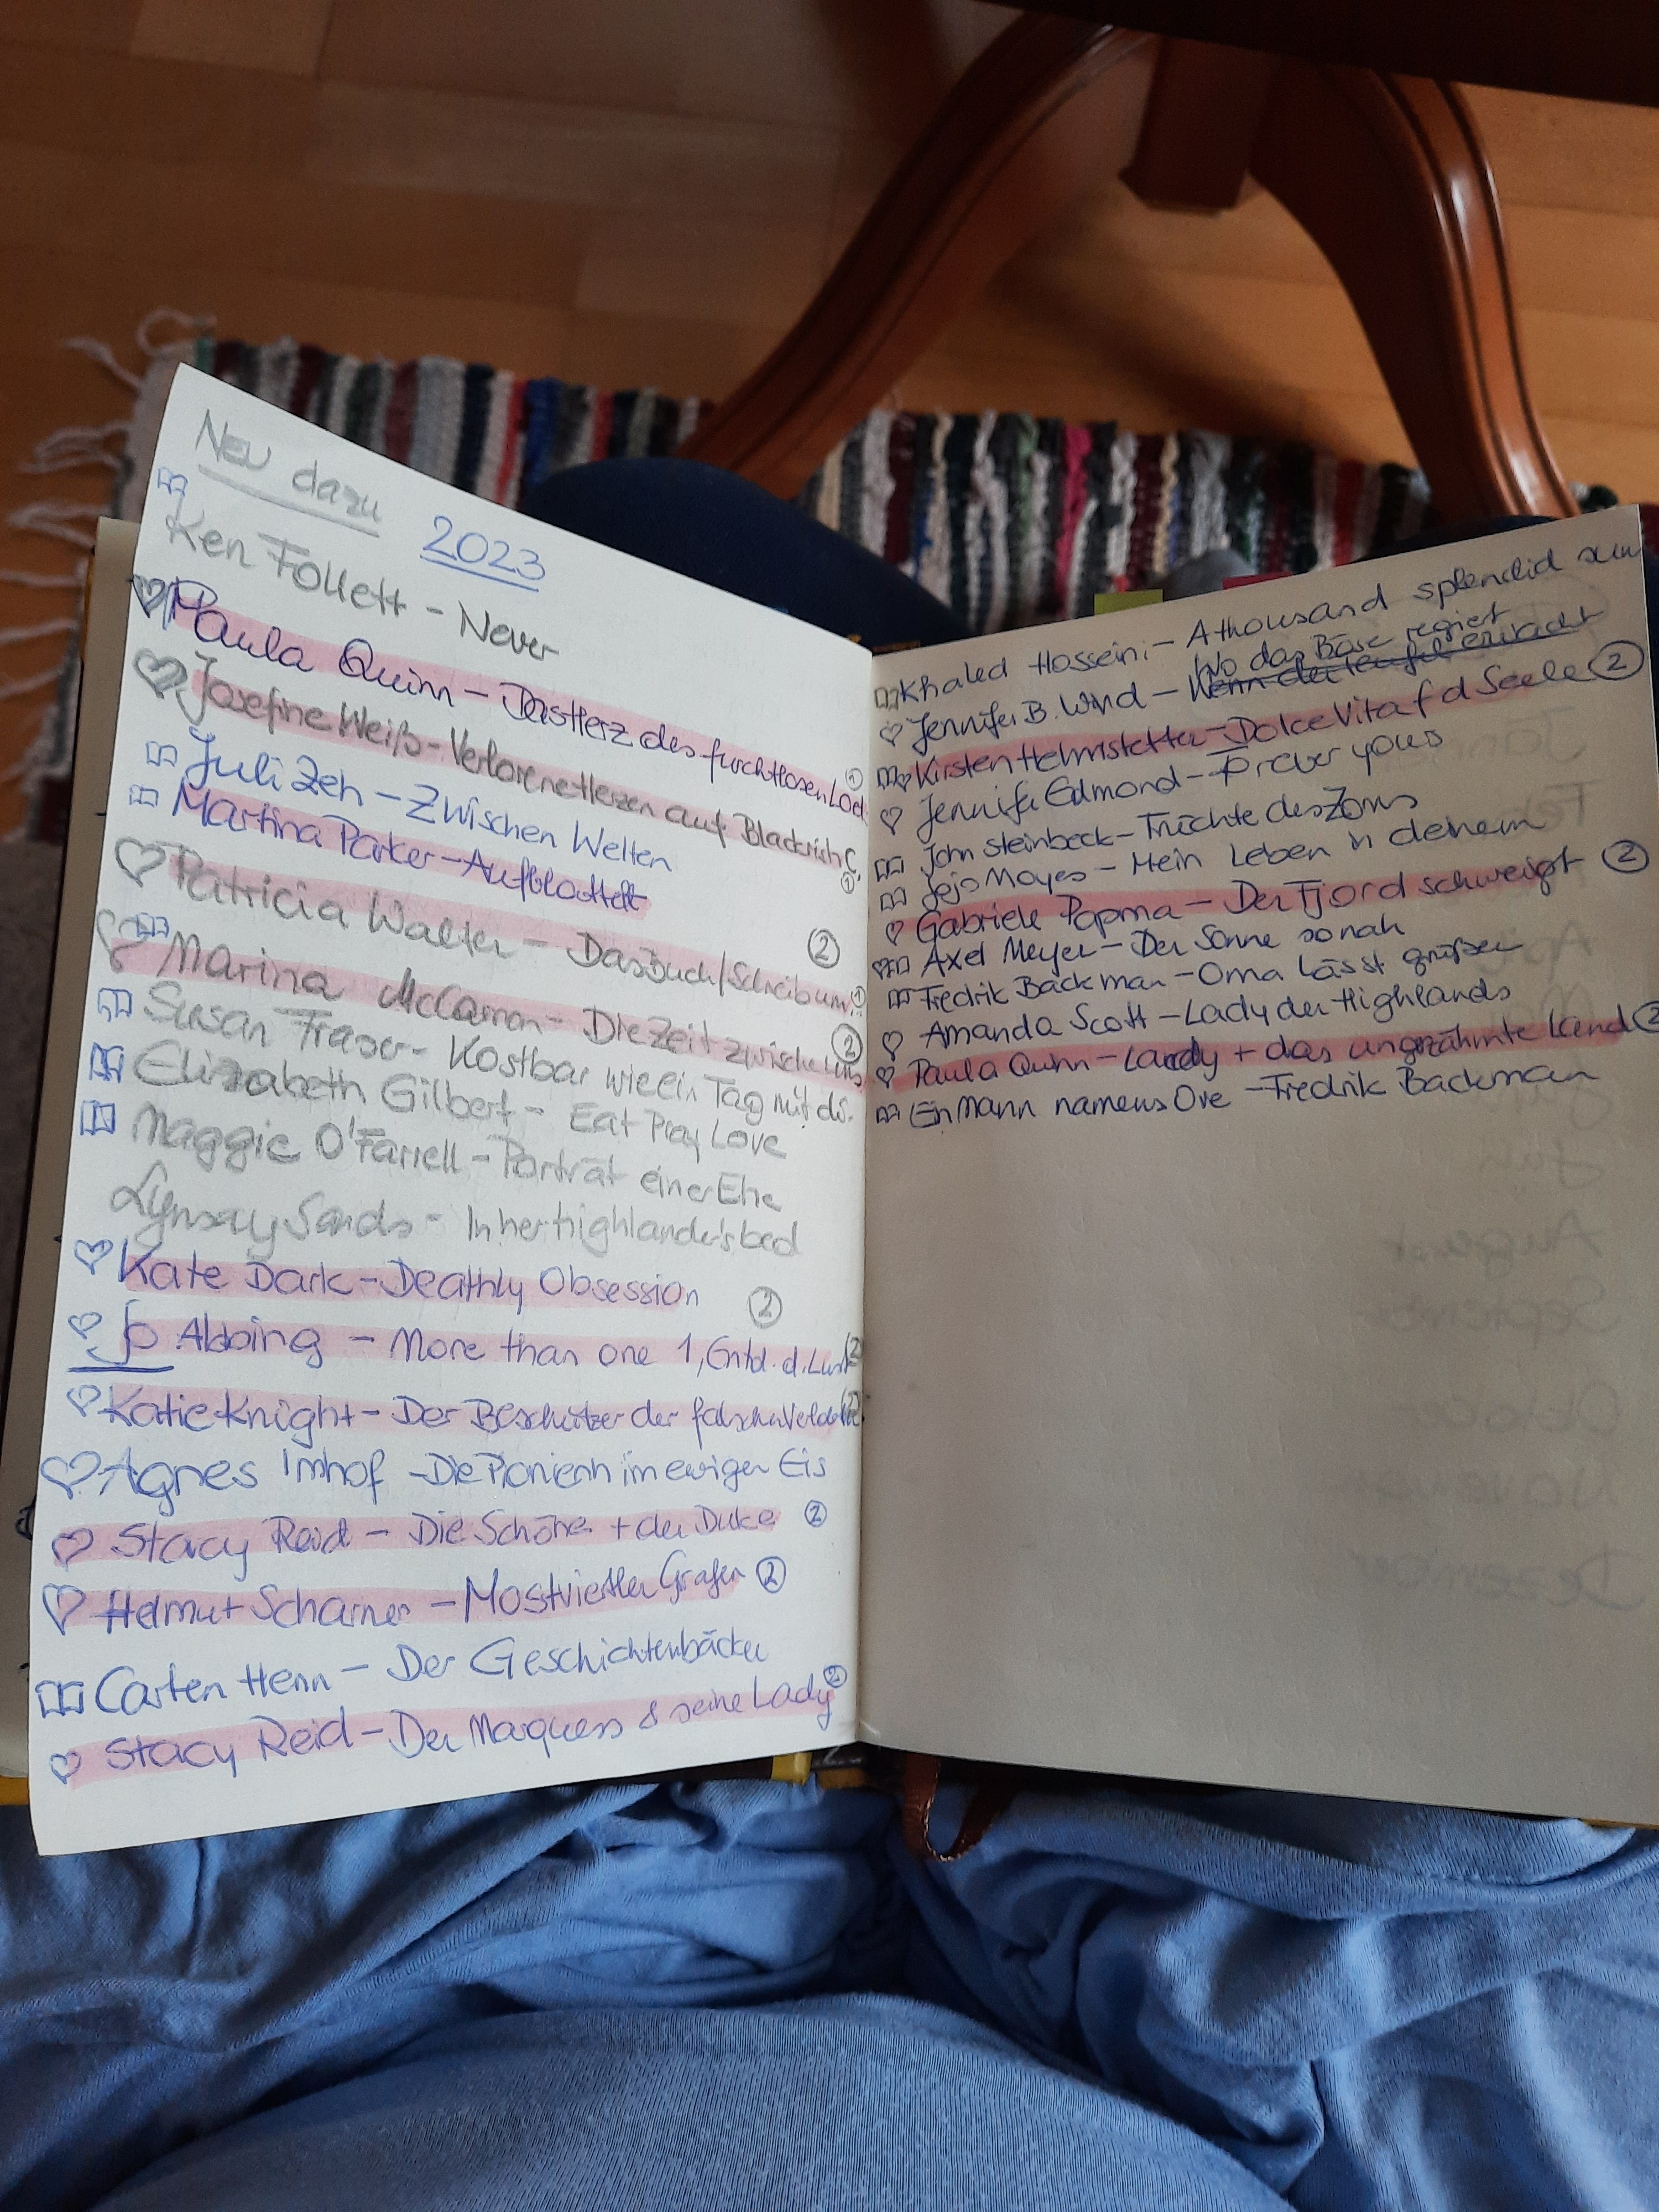 Neu dazu 2023
Ken Follett - Never
Paula Quinn - Das Herz des furchtlosen
Josefine Weiß - Verlorene Herzen auf
Juli Zeh - Zwischen Welten
Martina Parker - Aufblattelt
Patricia Walter - Das Buch/Schreib um ①
②
Marina McCarron - Die Zeit zwischen uns
Susan Fraser - Kostbar wie ein Tag mit dir ②
Elizabeth Gilbert - Eat Pray Love
Maggie O'Farrell - Porträt einer Ehe
Lynsay Sands - In her highlander's bed
Kate Dark - Deathly Obsession ②
Jo - More than one 1, Entd. d. Lust
Katie Knight - Der Beschützer der
Agnes Imhof - Die Pionierin im ewigen Eis
Stacy Reid - Die Schöne + der Duke ②
Helmut Scharner - Mostviertler Grafen ②
Carsten Henn - Der Geschichtenbäcker
Stacy Reid - Der Marquess & seine Lady ②
Khaled Hosseini - A thousand splendid sun
Wo das Böse regiert
Jennifer B. Wind - Wenn der Teufel erwacht
Kirsten Helmstetter - Dolce Vita f d Seele ②
Jennifer Edmond - Forever yours
John Steinbeck - Früchte des Zorns
Jojo Moyes - Mein Leben in deinem
Gabriele Papma - Der Fjord schweigt ②
Axel Meyer - Der Sonne so nah
Fredrik Backman - Oma lässt grüßen
Amanda Scott - Lady der Highlands
Paula Quinn - + das ungezähmte Land ②
Ein Mann namens Ove - Fredrik Backman